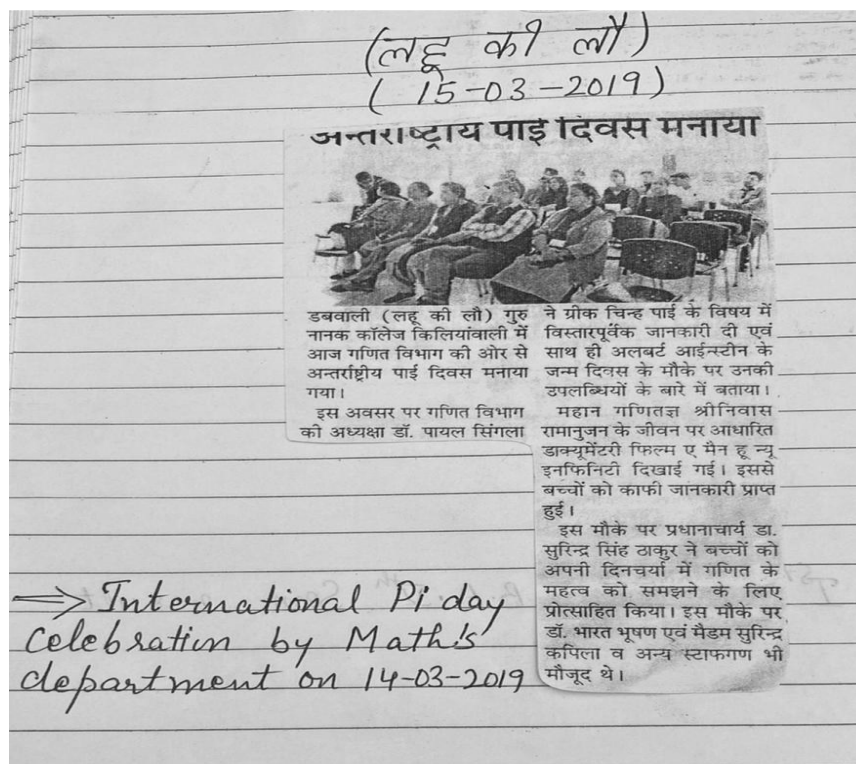 (लहू की लौ)
(15-03-2019)
अन्तराष्ट्राय पाई दिवस मनाया
डबवाली (लहू की लौ) गुरु
नानक कॉलेज किलियांवाली में
आज गणित विभाग की ओर से
अन्तर्राष्ट्रीय पाई दिवस मनाया
गया।
इस अवसर पर गणित विभाग
की अध्यक्षा डॉ. पायल सिंगला
ने ग्रीक चिन्ह पाई के विषय में
विस्तारपूर्वक जानकारी दी एवं
साथ ही अलबर्ट आईन्स्टीन के
जन्म दिवस के मौके पर उनकी
उपलब्धियों के बारे में बताया।
महान गणितज्ञ श्रीनिवास
रामानुजन के जीवन पर आधारित
डाक्यूमेंटरी फिल्म ए मैन हू न्यू
इनफिनिटी दिखाई गई। इससे
बच्चों को काफी जानकारी प्राप्त
हुई।
इस मौके पर प्रधानाचार्य डा.
सुरिन्द्र सिंह ठाकुर ने बच्चों को
अपनी दिनचर्या में गणित के
महत्व को समझने के लिए
प्रोत्साहित किया। इस मौके पर
डॉ. भारत भूषण एवं मैडम सुरिन्द्र
कपिला व अन्य स्टाफगण भी
मौजूद थे।
⇒ International Pi day
celebration by Math's
department on 14-03-2019